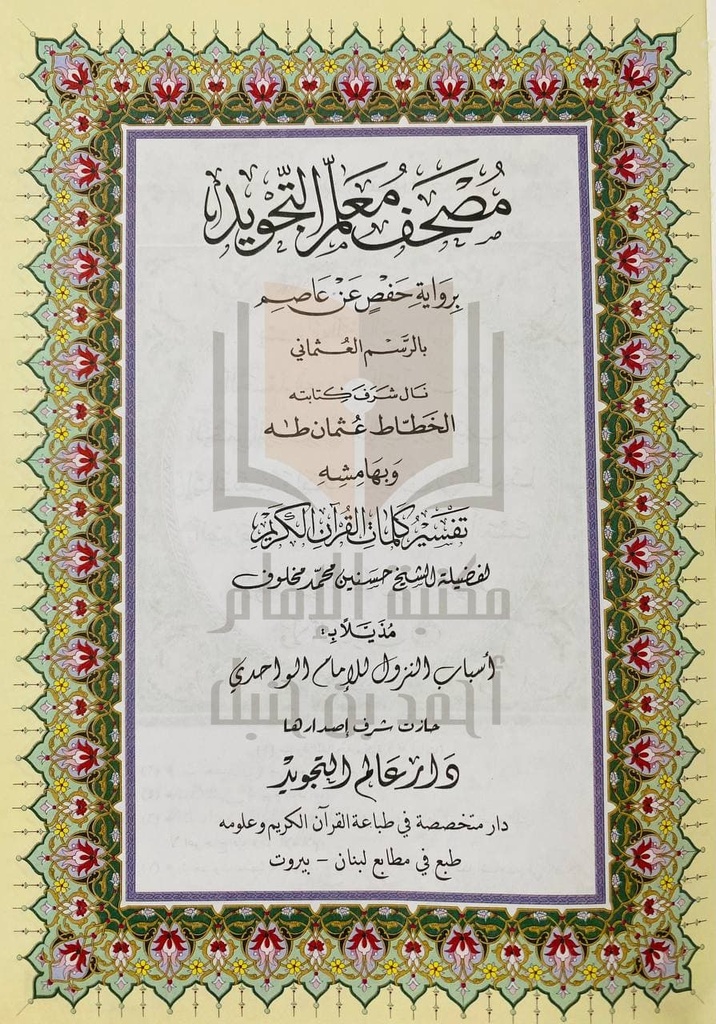 مُصْحَف مُعَلِّم التَّجْوِيد
بِرِوَايَةِ حَفْصٍ عَنْ عَاصِم
بالرَّسْم العُثماني
نَال شَرَفَ كِتابته
الخَطّاط عُثمان طٰه
وَبهَامِشِهِ
تَفْسِيرُ كَلِمَاتِ القُرْآنِ الكَرِيمِ
لفضيلة الشيخ حسنين محمّد مخلوف
مُذَيَّلاً بـ:
أسباب النزول للإمام الواحدي
حازت شرف إصدارها
دَار عَالم التجويْد
دار متخصصة في طباعة القرآن الكريم وعلومه
طبع في مطابع لبنان - بيروت
مكتبة الإمام
أحمد بن حنبل